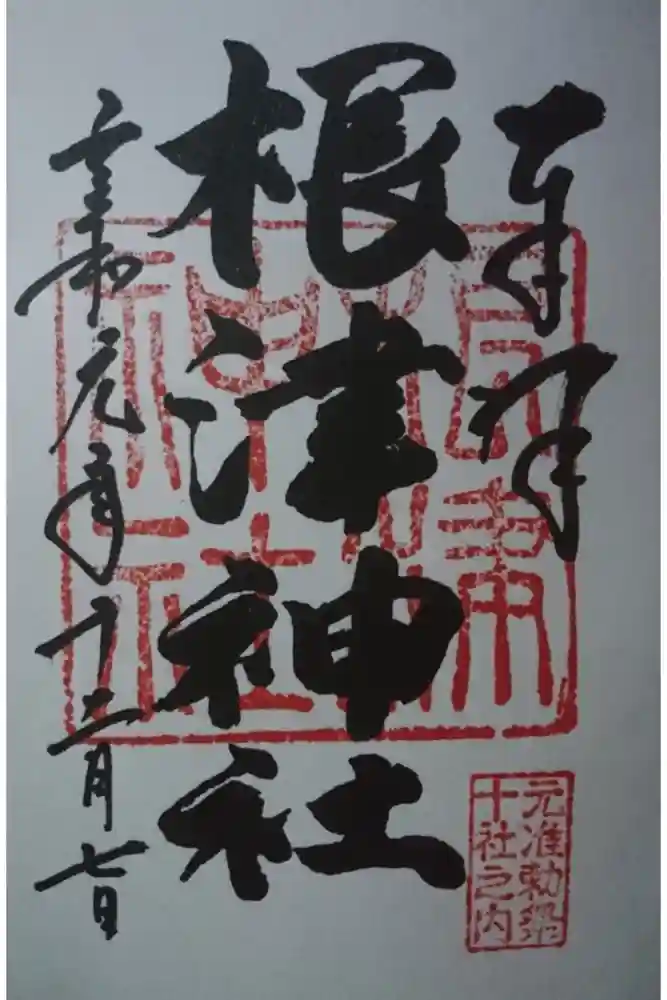 奉拝
根津神社
根津
神社
元准勅祭
十社之内
令和元年十二月七日